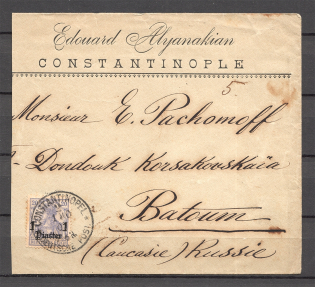 Edouard Alyanakian
CONSTANTINOPLE
5.
Monsieur E. Pachomoff
Dondouk Korsakovskaïa
Batoum
(Caucasie) Russie
CONSTANTINOPEL
1 Piaster 1
DEUTSCHE POST